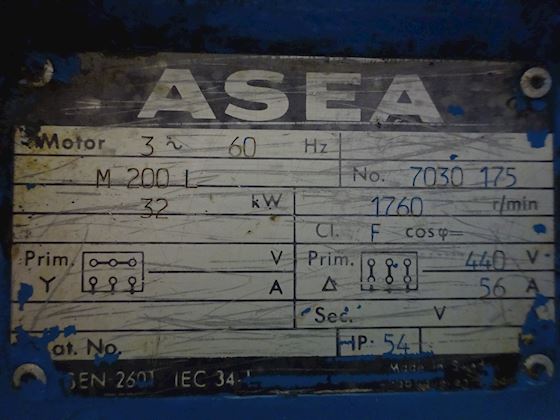 ASEA
Motor 3 ~ 60 Hz
M 200 L No. 7030 175
32 kW 1760 r/min
Cl. F cosφ=
Prim. V Prim. 440 V
Y A Δ 56 A
Sec. V
Cat. No. IP 54
SEN 2601 IEC 34-1
Made in Sweden